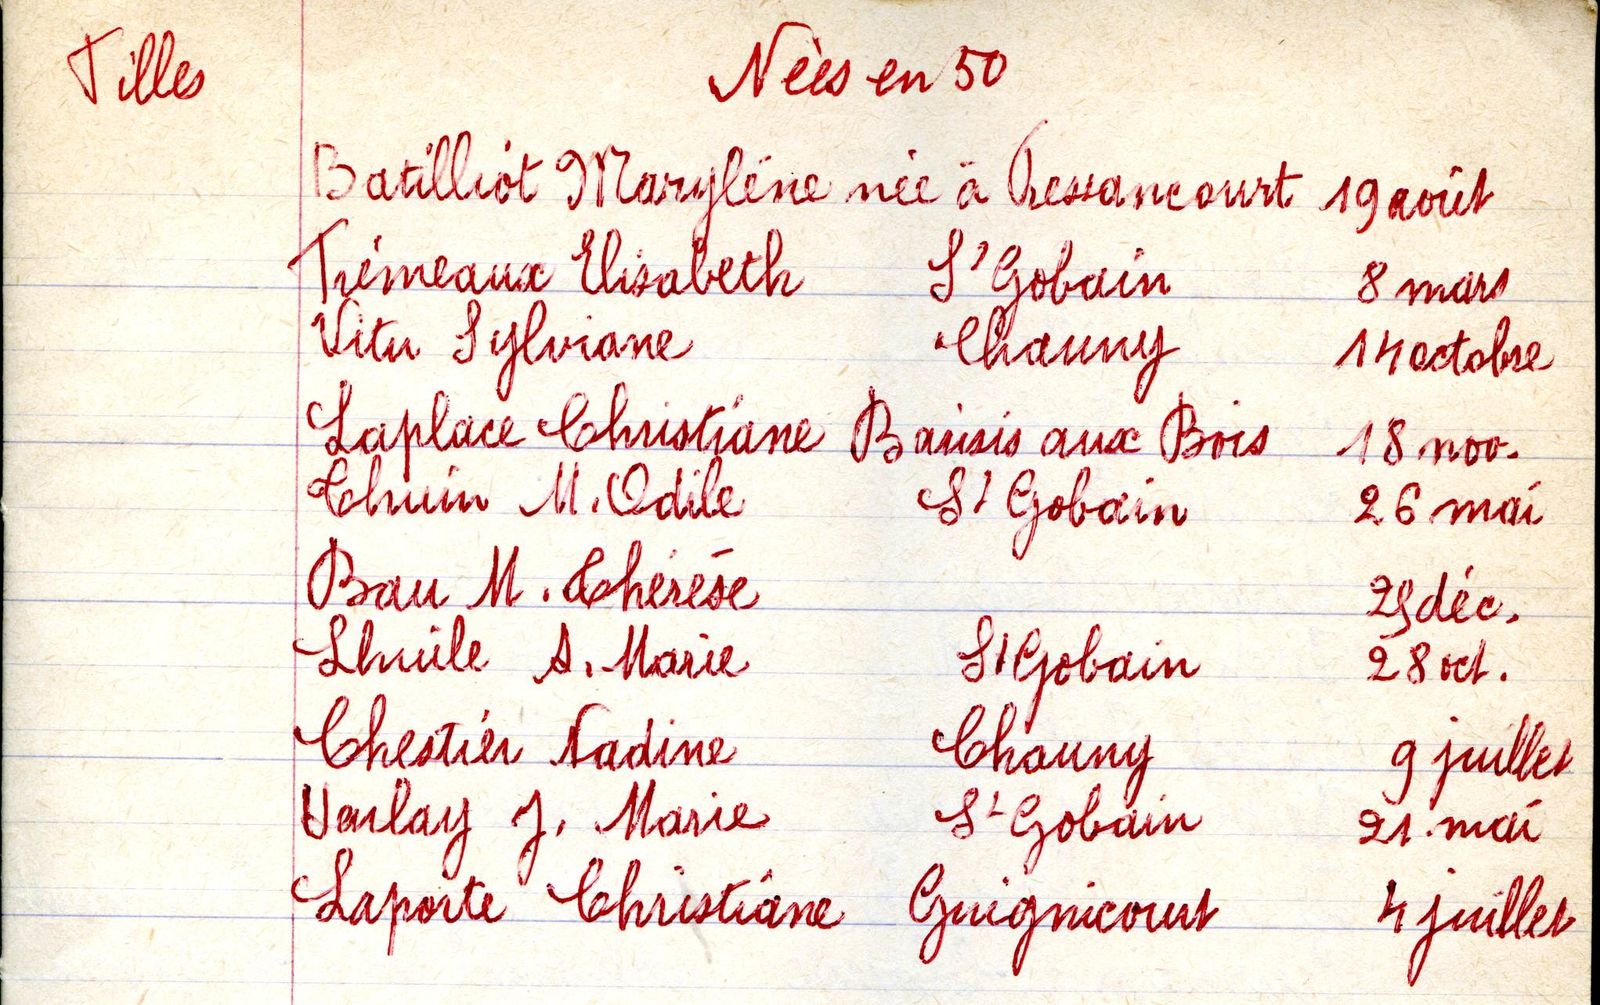 Filles Nèes en 50
Batilliot Marylène née à Pressancourt 19 août
Trémeaux Elisabeth St Gobain 8 mars
Vitu Sylviane Chauny 14 octobre
Laplace Christiane Barisis aux Bois 18 nov.
Thuin M. Odile St Gobain 26 mai
Bau M. Thérèse 29 déc.
Lhuile A. Marie St Gobain 28 oct.
Chestier Nadine Chauny 9 juillet
Varlay J. Marie St Gobain 21 mai
Laporte Christiane Guignicourt 4 juillet